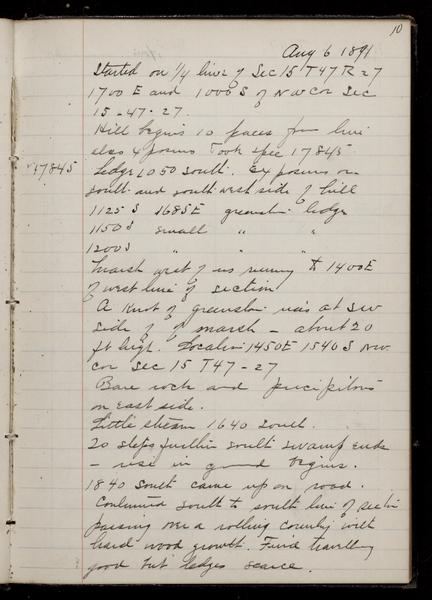 10
Aug 6 1891
Started on 1/4 line of Sec 15 T47 R27
1700 E and 1000 S of NW Cor Sec
15-47-27.
Hill begins 10 paces from line
also exposures Took spec 17845
17845 Ledge 1050 south. Exposures on
south and southwest side of hill
1125 S 1685 E greenstone ledge
1150 S small " "
1200 S " " "
Marsh west of us running to 1400 E
of west line of section
A Knot of greenstone rises at SW
side of marsh - about 20
ft high. Location 1450 E 1540 S NW
cor Sec 15 T47-27
Bare rock and precipitous
on east side.
Little stream 1640 south.
20 steps further south swamp ends
- rise in ground begins.
1840 south came upon road.
Continued south to south line of section
passing over a rolling country with
hard wood growth. Find travelling
good but ledges scarce.